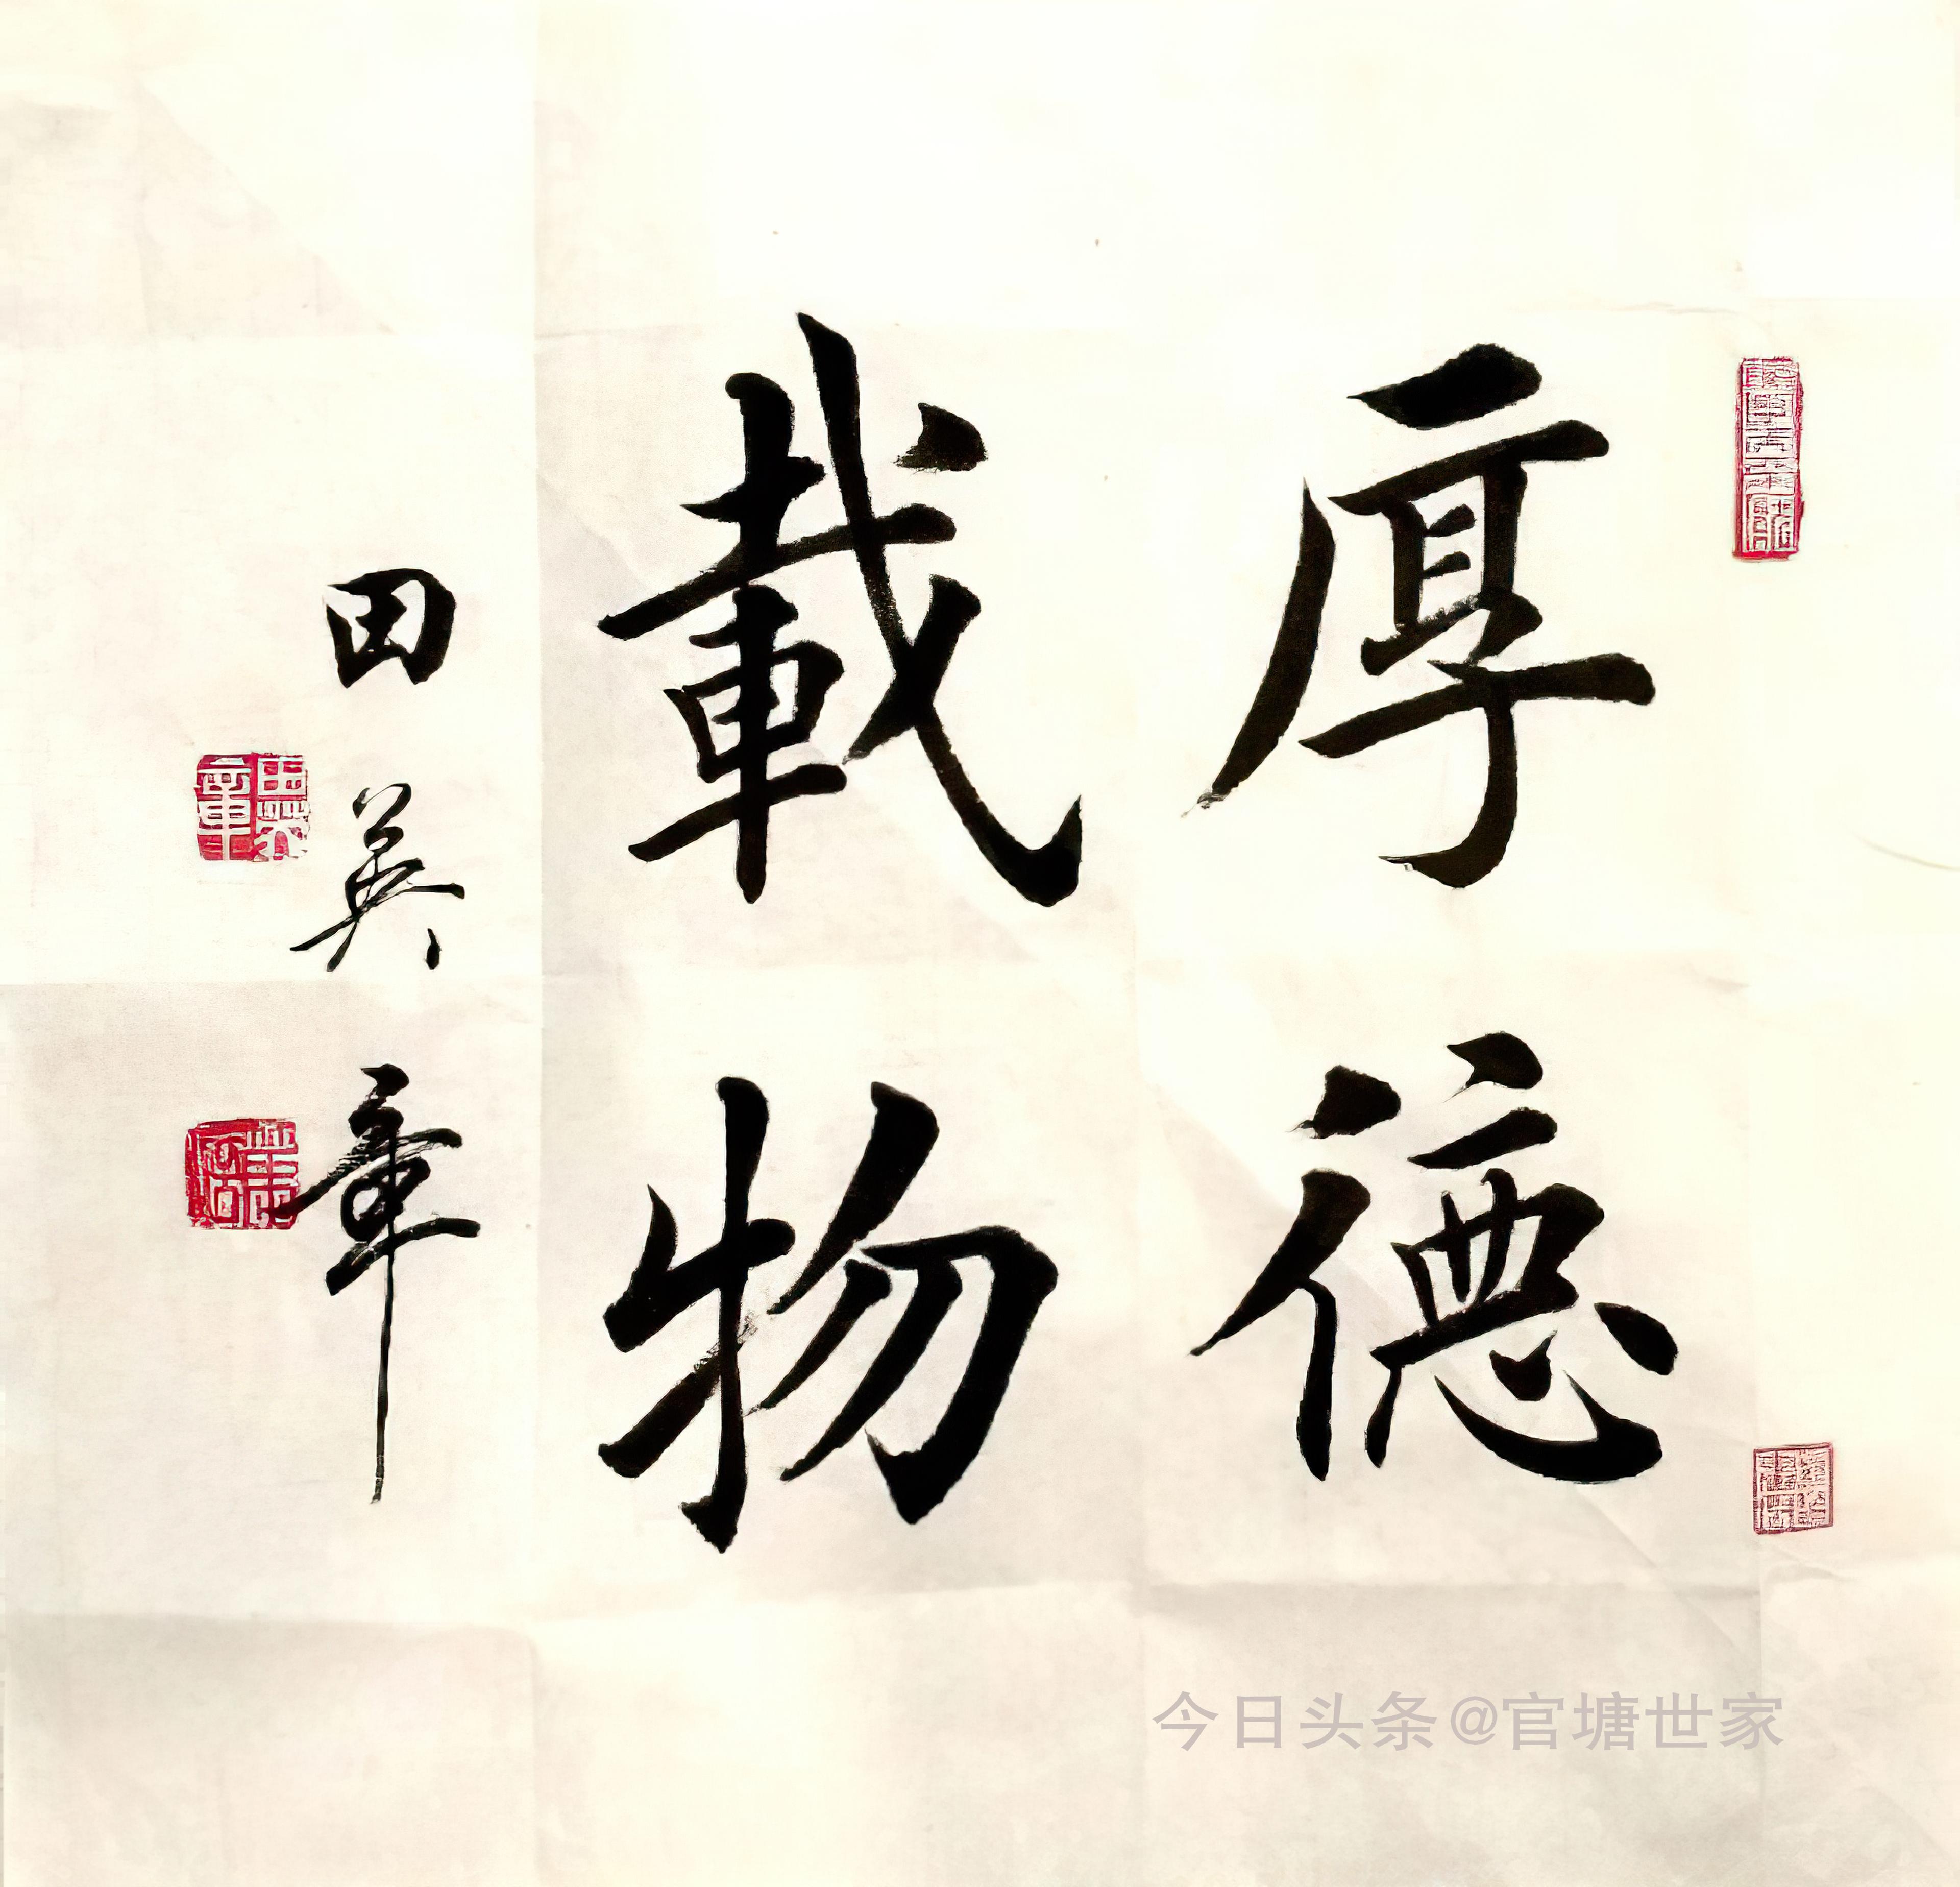 厚德
載物
田英章
田英章
今日头条@官塘世家